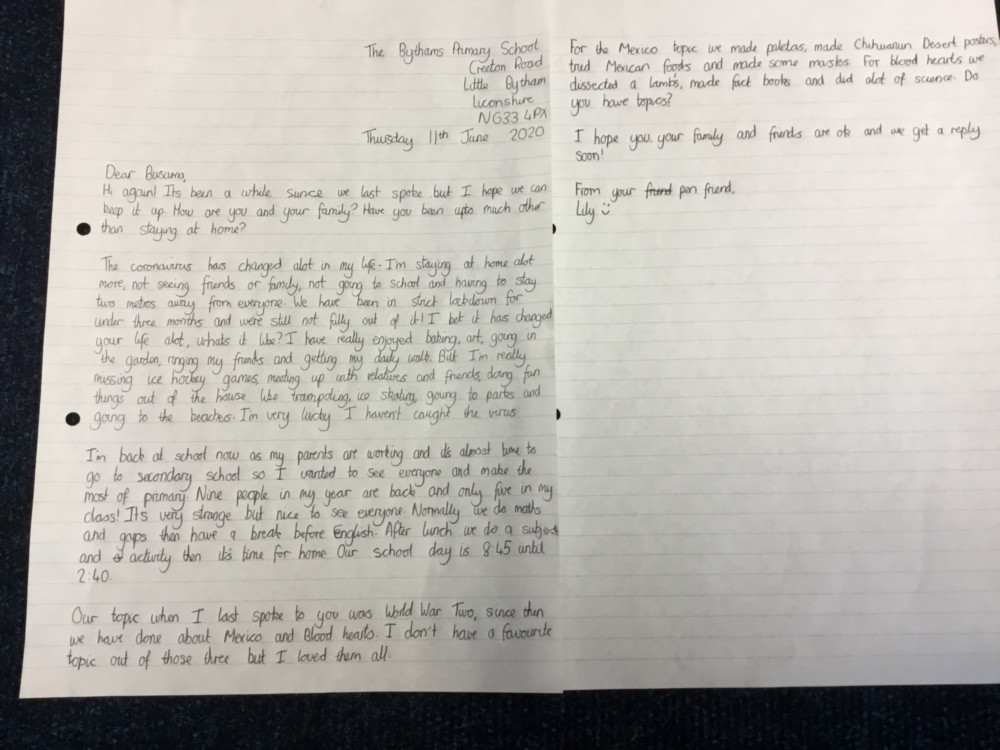 The Bythams Primary School
Creeton Road
Little Bytham
Liconshire
NG33 4PX
Thursday 11th June 2020
Dear Busuma,
Hi again! Its been a while since we last spoke but I hope we can
keep it up. How are you and your family? Have you been upto much other
than staying at home?
The coronavirus has changed alot in my life. I'm staying at home alot
more, not seeing friends or family, not going to school and having to stay
two metres away from everyone. We have been in strict lockdown for
under three months and were still not fully out of it! I bet it has changed
your life alot, whats it like? I have really enjoyed baking, art, going in
the garden, ringing my friends and getting my daily walk. But I'm really
missing ice hockey games, meeting up with relatives and friends, doing fun
things out of the house like trampoling, ice skating, going to parks and
going to the beaches. I'm very lucky I havent caught the virus
I'm back at school now as my parents are working and it's almost time to
go to secondary school so I wanted to see everyone and make the
most of primary. Nine people in my year are back and only five in my
class! Its very strange but nice to see everyone. Normally we do maths
and gaps then have a break before English. After lunch we do a subject
and activity then it's time for home. Our school day is 8:45 until
2:40.
Our topic when I last spoke to you was World War Two, since then
we have done about Mexico and Blood hearts. I don't have a favourite
topic out of those three but I loved them all.
For the Mexico topic we made paletas, made Chihuanun Desert posters,
tried Mexican foods and made some masks. For blood hearts we
dissected a lambs, made fact books and did alot of science. Do
you have topics?
I hope you, your family and friends are ok and we get a reply
soon!
From your friend pen friend,
Lily